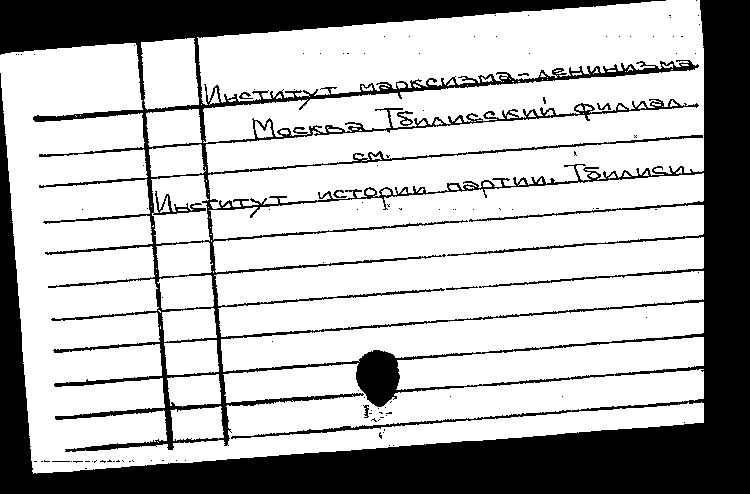 Институт марксизма-ленинизма
Москва. Тбилисский филиал.
см.
Институт истории партии. Тбилиси.